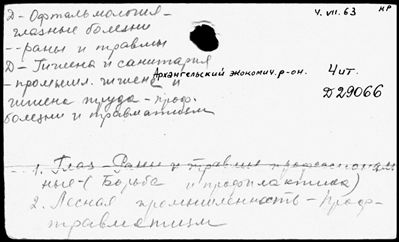 Д - Офтальмология -
глазные болезни
-- раны и травмы
Д - Гигиена и санитария
- промышл. гигиена и
гигиена труда - проф.
болезни и травматизм
4.VII.63
НР
Архангельский экономич. р-он.
Чит.
Д29066
1. Глаз - Раны и травмы профессиональ-
ные - (Борьба и профилактика)
2. Лесная промышленность - Проф-
травматизм